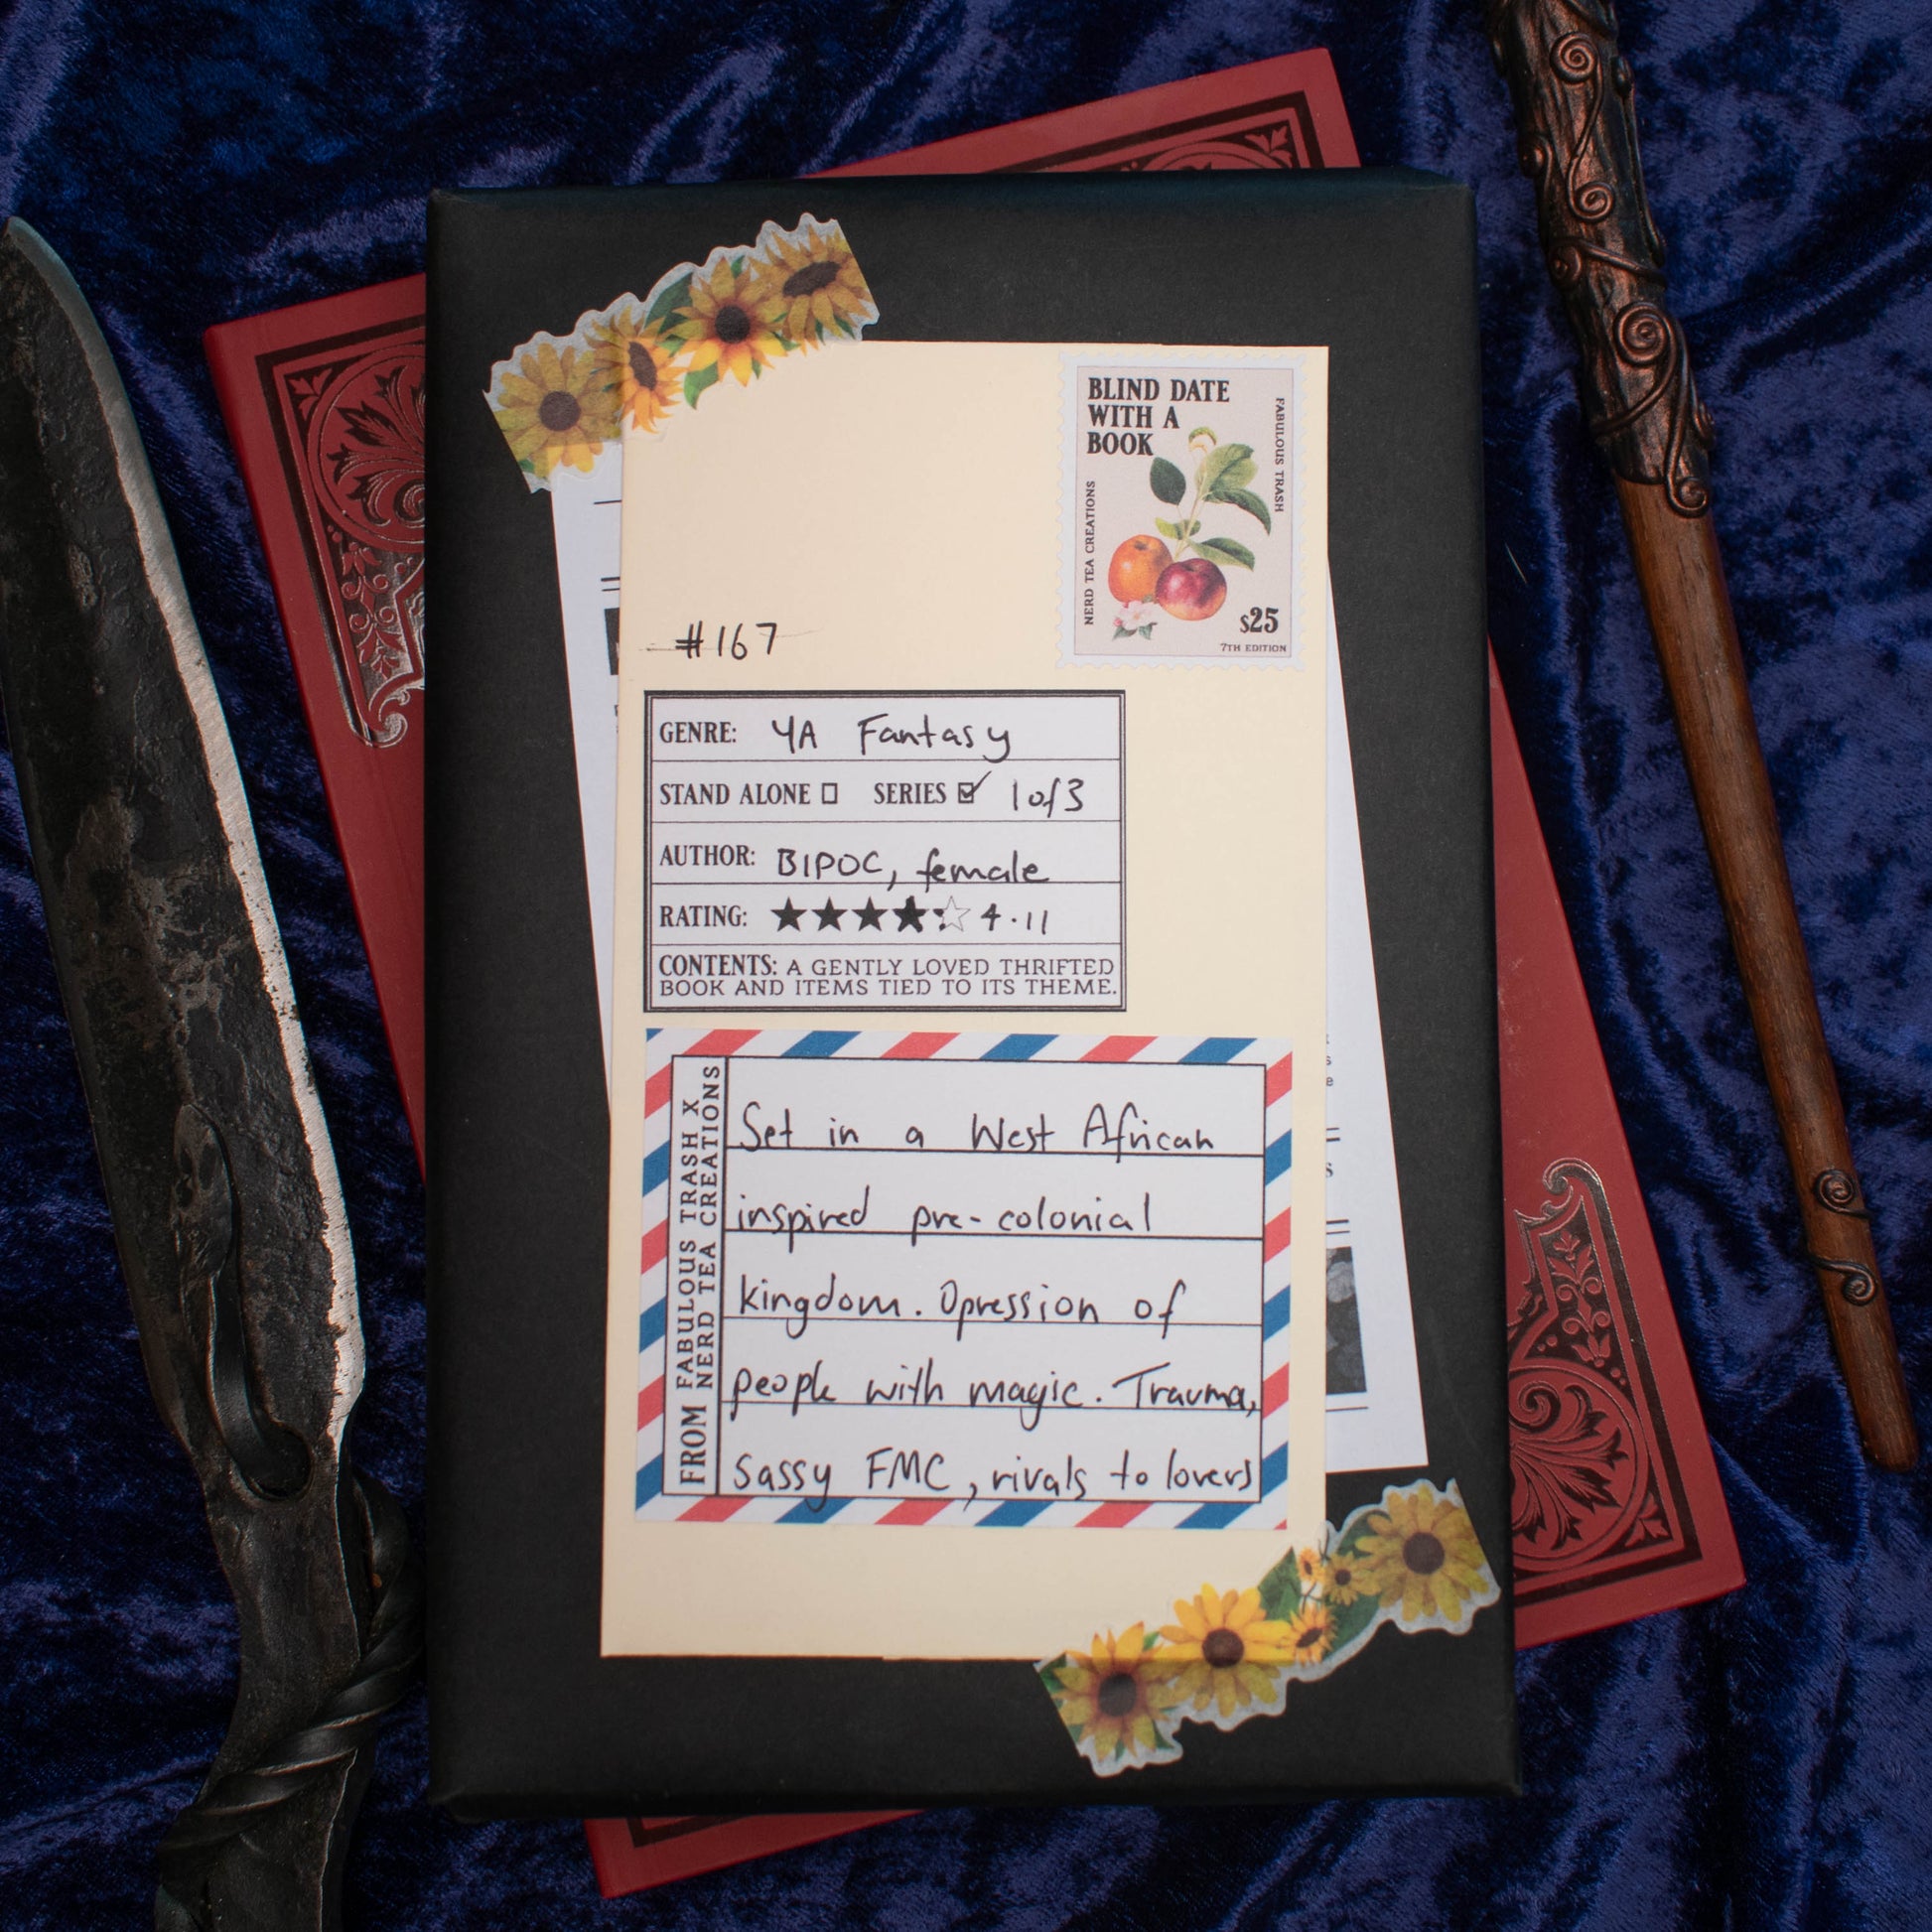 BLIND DATE
WITH A
BOOK
FABULOUS TRASH
NERD TEA CREATIONS
$25
7TH EDITION
#167
GENRE: YA Fantasy
STAND ALONE ☐ SERIES ☑ 1 of 3
AUTHOR: BIPOC, female
RATING: ★★★★☆ 4.11
CONTENTS: A GENTLY LOVED THRIFTED
BOOK AND ITEMS TIED TO ITS THEME.
FROM FABULOUS TRASH X
NERD TEA CREATIONS
Set in a West African
inspired pre-colonial
kingdom. Opression of
people with magic. Trauma,
sassy FMC, rivals to lovers